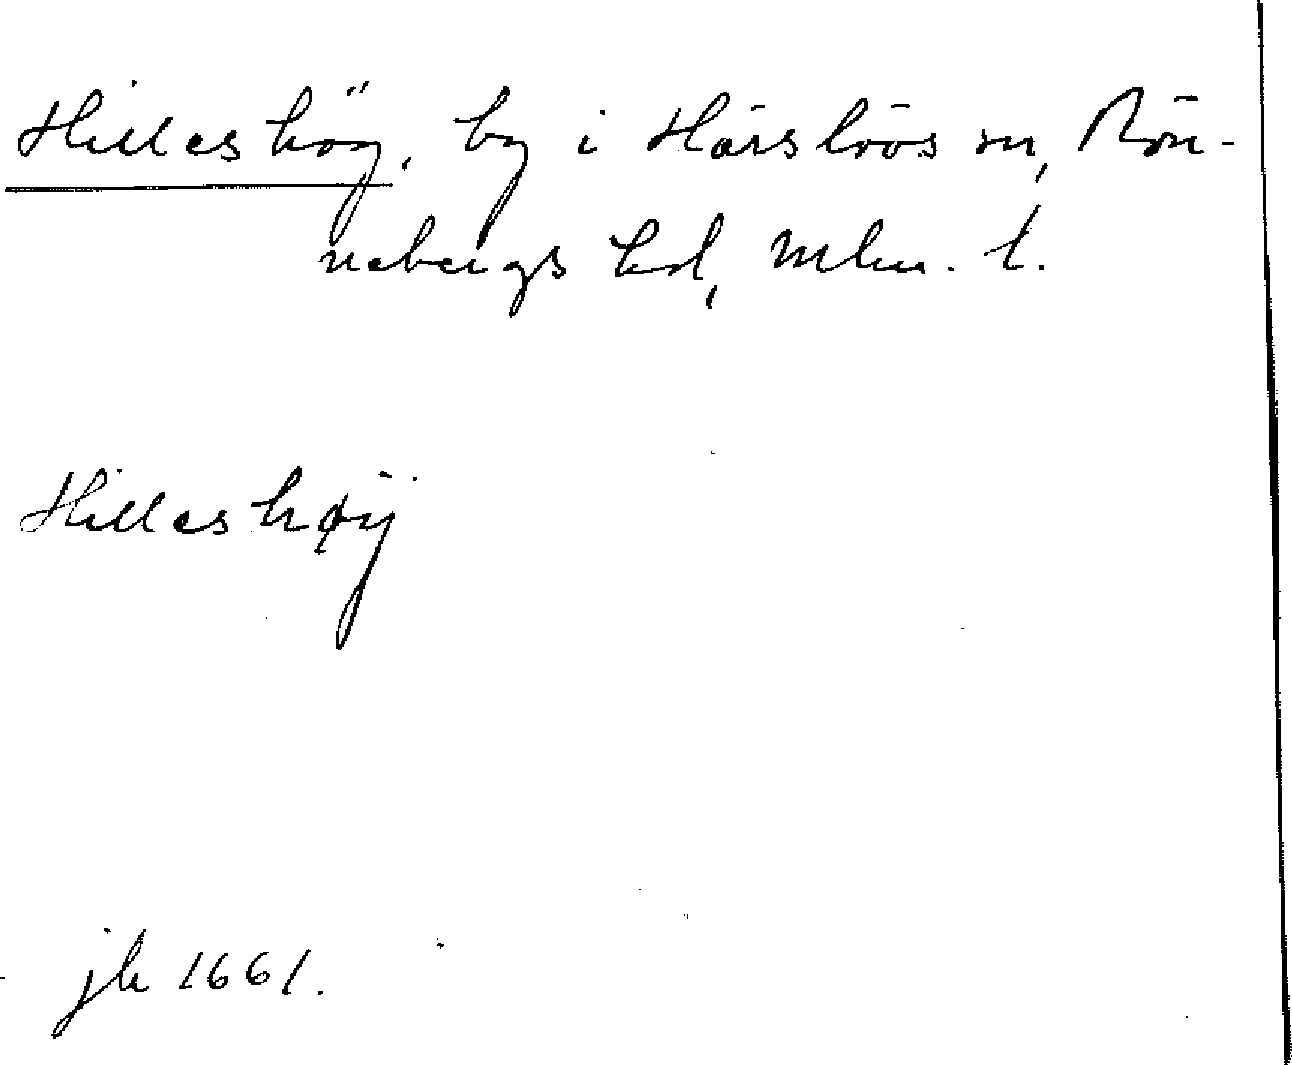 Hilleshög, by i Härslövs sn, Rön-
nebergs hd, Mlm. l.
Hilleshøij
jb 1661.